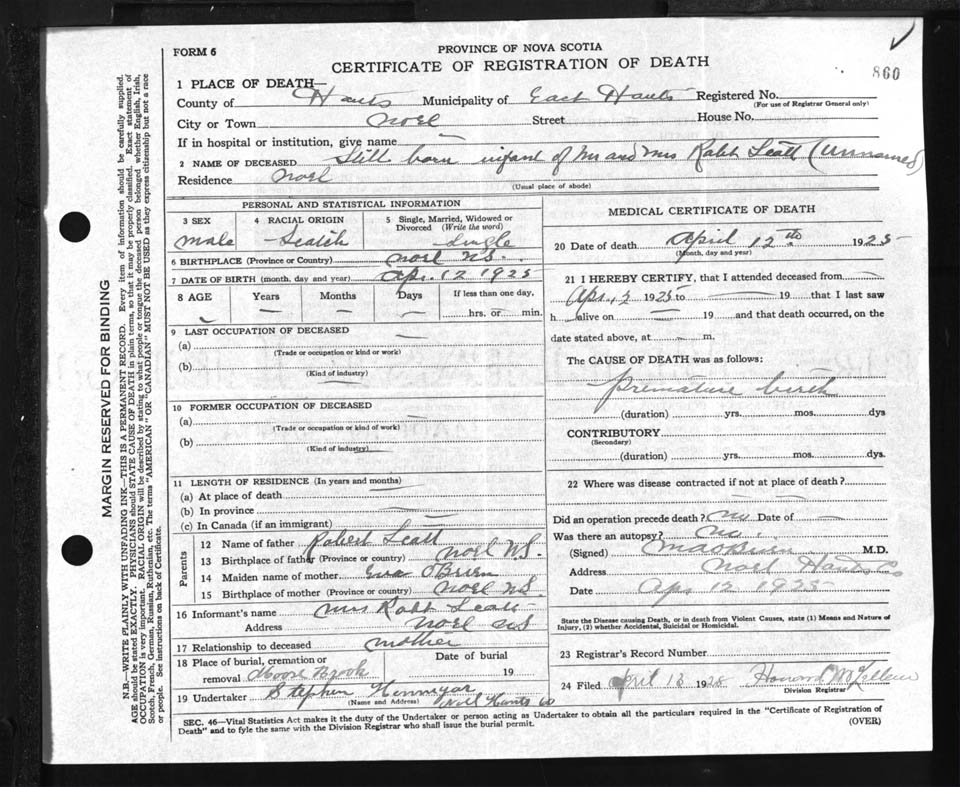 860
FORM 6
PROVINCE OF NOVA SCOTIA
CERTIFICATE OF REGISTRATION OF DEATH
1 PLACE OF DEATH—
County of Hants Municipality of East Hants Registered No.
(For use of Registrar General only)
City or Town Noel Street House No.
If in hospital or institution, give name —
2 NAME OF DECEASED Still born infant of Mr and Mrs Robt Scott (Unnamed)
Residence Noel
(Usual place of abode)
PERSONAL AND STATISTICAL INFORMATION
3 SEX 4 RACIAL ORIGIN 5 Single, Married, Widowed or Divorced (Write the word)
male Scotch single
6 BIRTHPLACE (Province or Country) Noel N.S.
7 DATE OF BIRTH (month, day and year) Apr. 12 1925
8 AGE Years Months Days If less than one day,
— — — — hrs. or min.
9 LAST OCCUPATION OF DECEASED
(a)
(Trade or occupation or kind or work)
(b)
(Kind of industry)
10 FORMER OCCUPATION OF DECEASED
(a)
(Trade or occupation or kind of work)
(b)
(Kind of industry)
11 LENGTH OF RESIDENCE (In years and months)
(a) At place of death
(b) In province
(c) In Canada (if an immigrant)
Parents
12 Name of father Robert Scott
13 Birthplace of father (Province or country) Noel N.S.
14 Maiden name of mother Eva O'Brien
15 Birthplace of mother (Province or country) Noel N.S.
16 Informant's name Mrs Robt Scott
Address Noel
17 Relationship to deceased mother
18 Place of burial, cremation or removal Moose Brook Date of burial 19
19 Undertaker Stephen Noel Hants Co
(Name and Address)
MEDICAL CERTIFICATE OF DEATH
20 Date of death April 12th 1925
(Month, day and year)
21 I HEREBY CERTIFY, that I attended deceased from —
Apr. 1925 to — 19 that I last saw
h alive on — 19 and that death occurred, on the
date stated above, at — m.
The CAUSE OF DEATH was as follows:
premature birth
(duration) yrs. mos. dys
CONTRIBUTORY
(Secondary)
(duration) yrs. mos. dys.
22 Where was disease contracted if not at place of death?
— —
Did an operation precede death? no Date of —
Was there an autopsy? no.
(Signed) M.D.
Address Noel Hants Co
Date Apr 12 1925
State the Disease causing Death, or in death from Violent Causes, state (1) Means and Nature of
Injury, (2) whether Accidental, Suicidal or Homicidal.
23 Registrar's Record Number
24 Filed April 13 1925 Howard
Division Registrar
SEC. 46—Vital Statistics Act makes it the duty of the Undertaker or person acting as Undertaker to obtain all the particulars required in the "Certificate of Registration of
Death" and to fyle the same with the Division Registrar who shall issue the burial permit.
(OVER)
MARGIN RESERVED FOR BINDING
N.B.—WRITE PLAINLY WITH UNFADING INK—THIS IS A PERMANENT RECORD. Every item of information should be carefully supplied.
AGE should be stated EXACTLY. PHYSICIANS should STATE CAUSE OF DEATH in plain terms, so that it may be properly classified. Exact statement of
OCCUPATION is very important. RACIAL ORIGIN will be described by stating to what people or tongue the deceased person belonged, whether English, Irish,
Scotch, French, German, Russian, Ruthenian, etc. The terms "AMERICAN" OR "CANADIAN" MUST NOT BE USED as they express citizenship but not a race
or people. See instructions on back of Certificate.